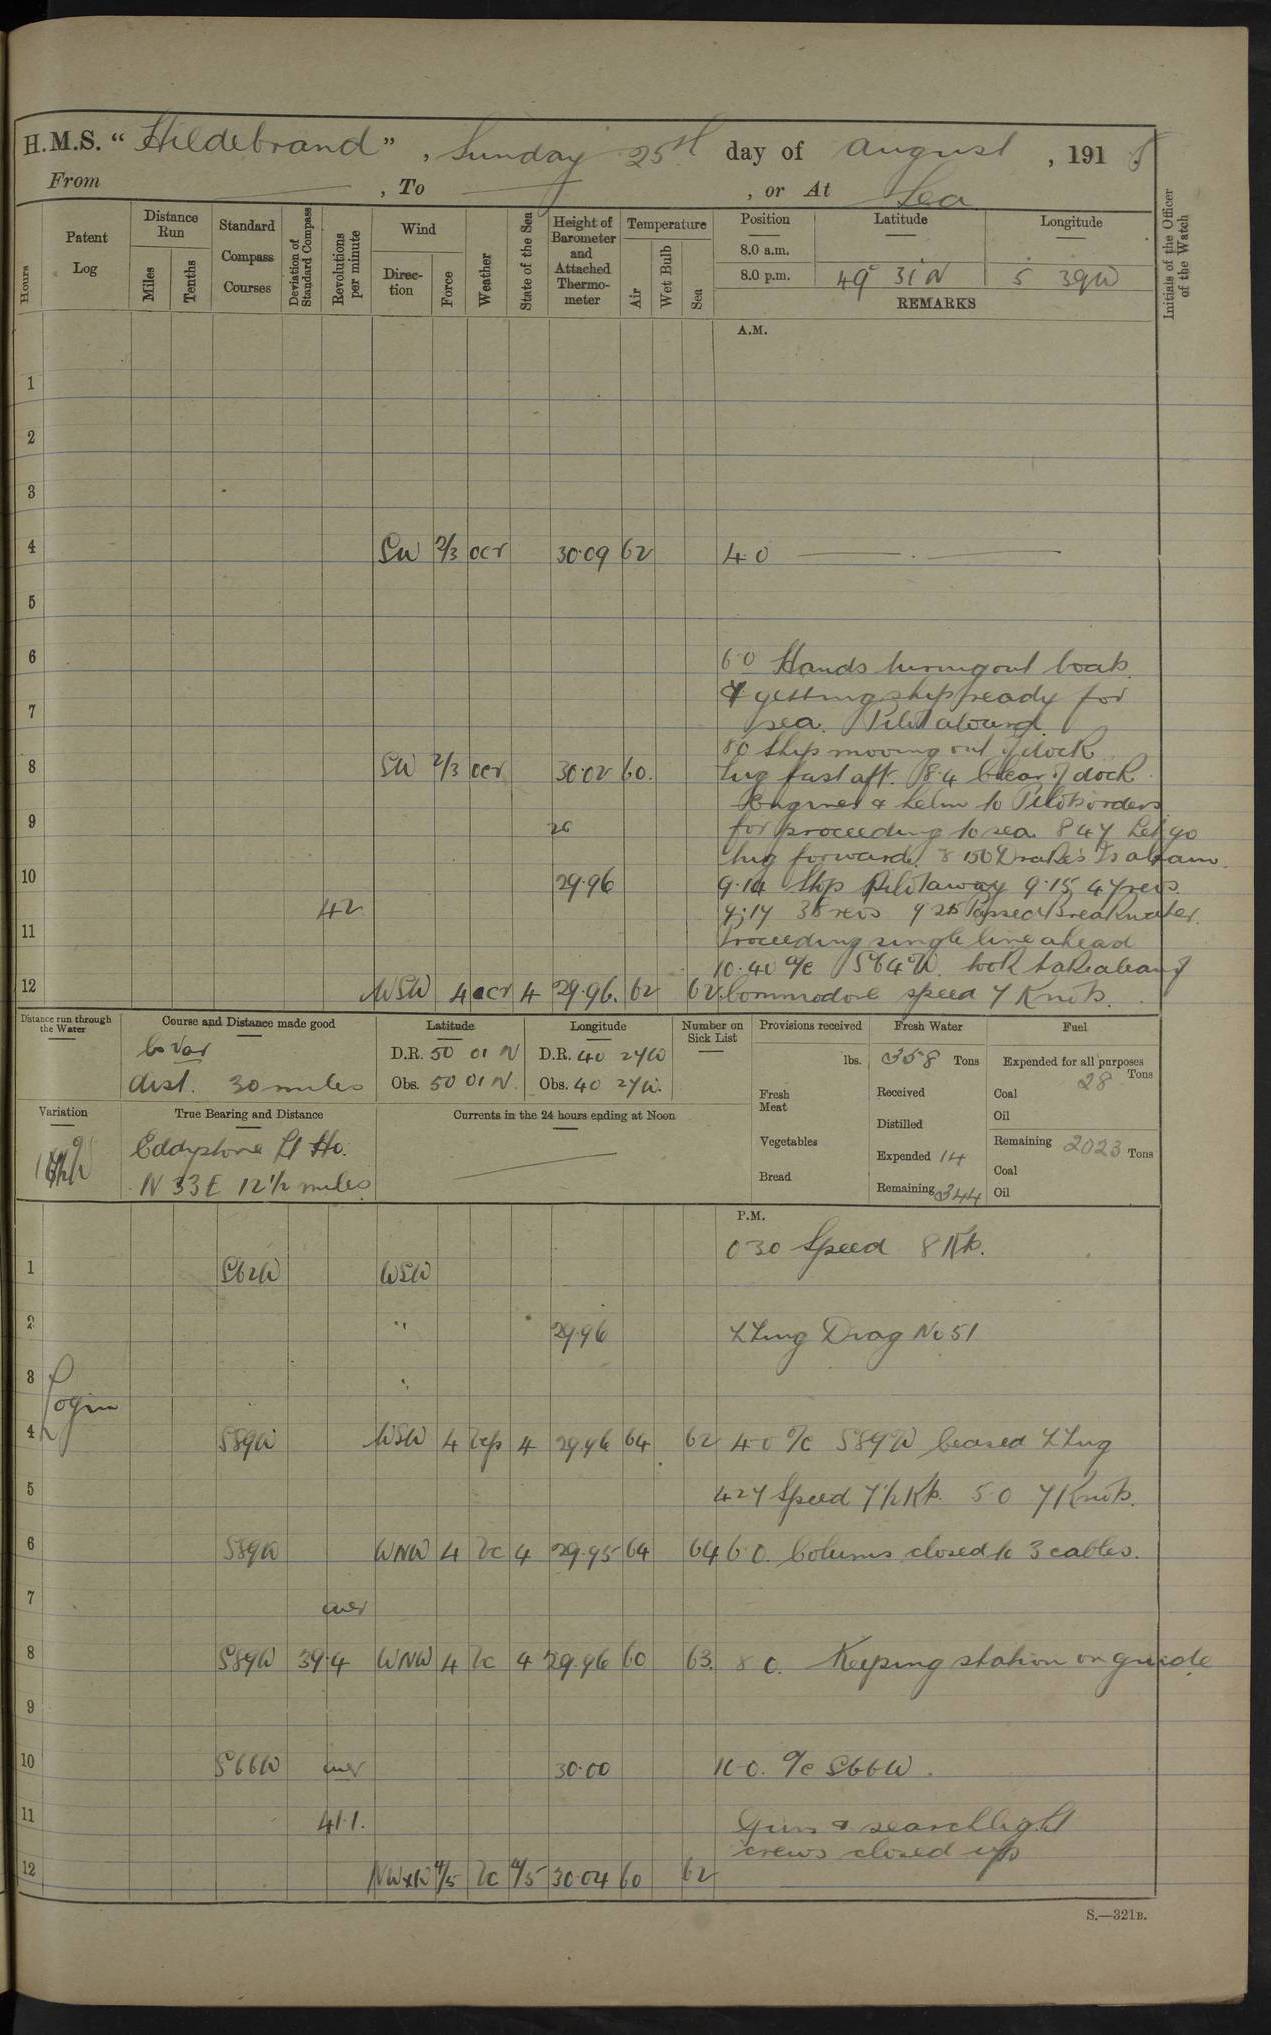 H.M.S. "Hildebrand", Sunday 25th day of August, 1918
From — , To — , or At Sea
Hours
Patent Log
Distance Run
Miles
Tenths
Standard Compass Courses
Deviation of Standard Compass
Revolutions per minute
Wind
Direction
Force
Weather
State of the Sea
Height of Barometer and Attached Thermometer
Temperature
Air
Wet Bulb
Sea
Position Latitude Longitude
8.0 a.m.
8.0 p.m. 49° 31' N 5 39 W
REMARKS
Initials of the Officer of the Watch
A.M.
1
2
3
4 SW 2/3 ocr 30.09 62 4.0 —
5
6 6.0 Hands turning out boats
& getting ship ready for
7 sea. Pilot aboard.
8.0 Ship moving out of dock
8 SW 2/3 ocr 30.02 60. Tug fast aft. 8.4 Clear of dock.
Engines & helm to Pilots orders
9 for proceeding to sea. 8 47 Let go
tug forward. 8 50 Drake's Is abeam.
10 29.96 9.14 Stop Pilot away 9.15 47 revs.
42 9.17 38 revs 9 25 Passed Breakwater.
11 Proceeding single line ahead
10.40 a/c S64W. took station abeam of
12 WSW 4 ocr 4 29.96. 62 62. Commodore speed 7 Knots.
Distance run through the Water
Course and Distance made good
Co Var
dist. 30 miles
Latitude
D.R. 50 01 N
Obs. 50 01 N.
Longitude
D.R. 40 27 W
Obs. 40 27 W.
Number on Sick List
Provisions received
lbs.
Fresh Meat
Vegetables
Bread
Fresh Water
358 Tons
Received
Distilled
Expended 14
Remaining 344
Fuel
Expended for all purposes
28 Tons
Coal
Oil
Remaining 2023 Tons
Coal
Oil
Variation
True Bearing and Distance
Eddystone Lt Ho.
N 33 E 12½ miles
Currents in the 24 hours ending at Noon
P.M.
0 30 Speed 8 Kts.
1 S62W WSW
2 " 29.96 ZZing Diag No 51
3 "
Log in
4 S89W WSW 4 bcp 4 29.96 64 62 4.0 a/c S89W Ceased ZZing
5 4 27 Speed 7½ Kts. 5.0 7 Knots.
6 S89W WNW 4 bc 4 29.95 64 64 6.0. Columns closed to 3 cables.
7 aver
8 S89W 39.4 WNW 4 bc 4 29.96 60 63. 8 0. Keeping station on guide
9
10 S66W aver 30.00 10.0. a/c S66W.
11 41.1. Guns & searchlight
crews closed up
12 NWxW 4/5 bc 4/5 30.04 60 62
S.—321B.